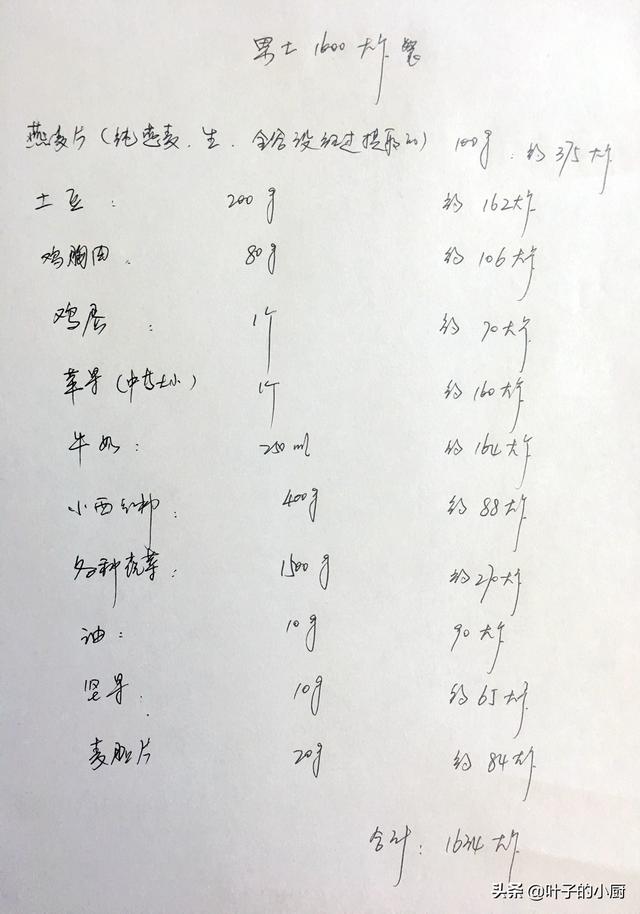 男士1600大卡餐
燕麦片(纯燕麦.生.全谷没经过提取的) 100g.约375大卡
土豆: 200g 约162大卡
鸡胸肉. 80g 约106大卡
鸡蛋: 1个 约70大卡
苹果(中等大小) 1个 约160大卡
牛奶: 250ml 约164大卡
小西红柿: 400g 约88大卡
各种蔬菜: 1500g 约270大卡
油: 10g 90大卡
坚果: 10g 约65大卡
麦胚片 20g 约84大卡
合计:1634大卡
头条@叶子的小厨